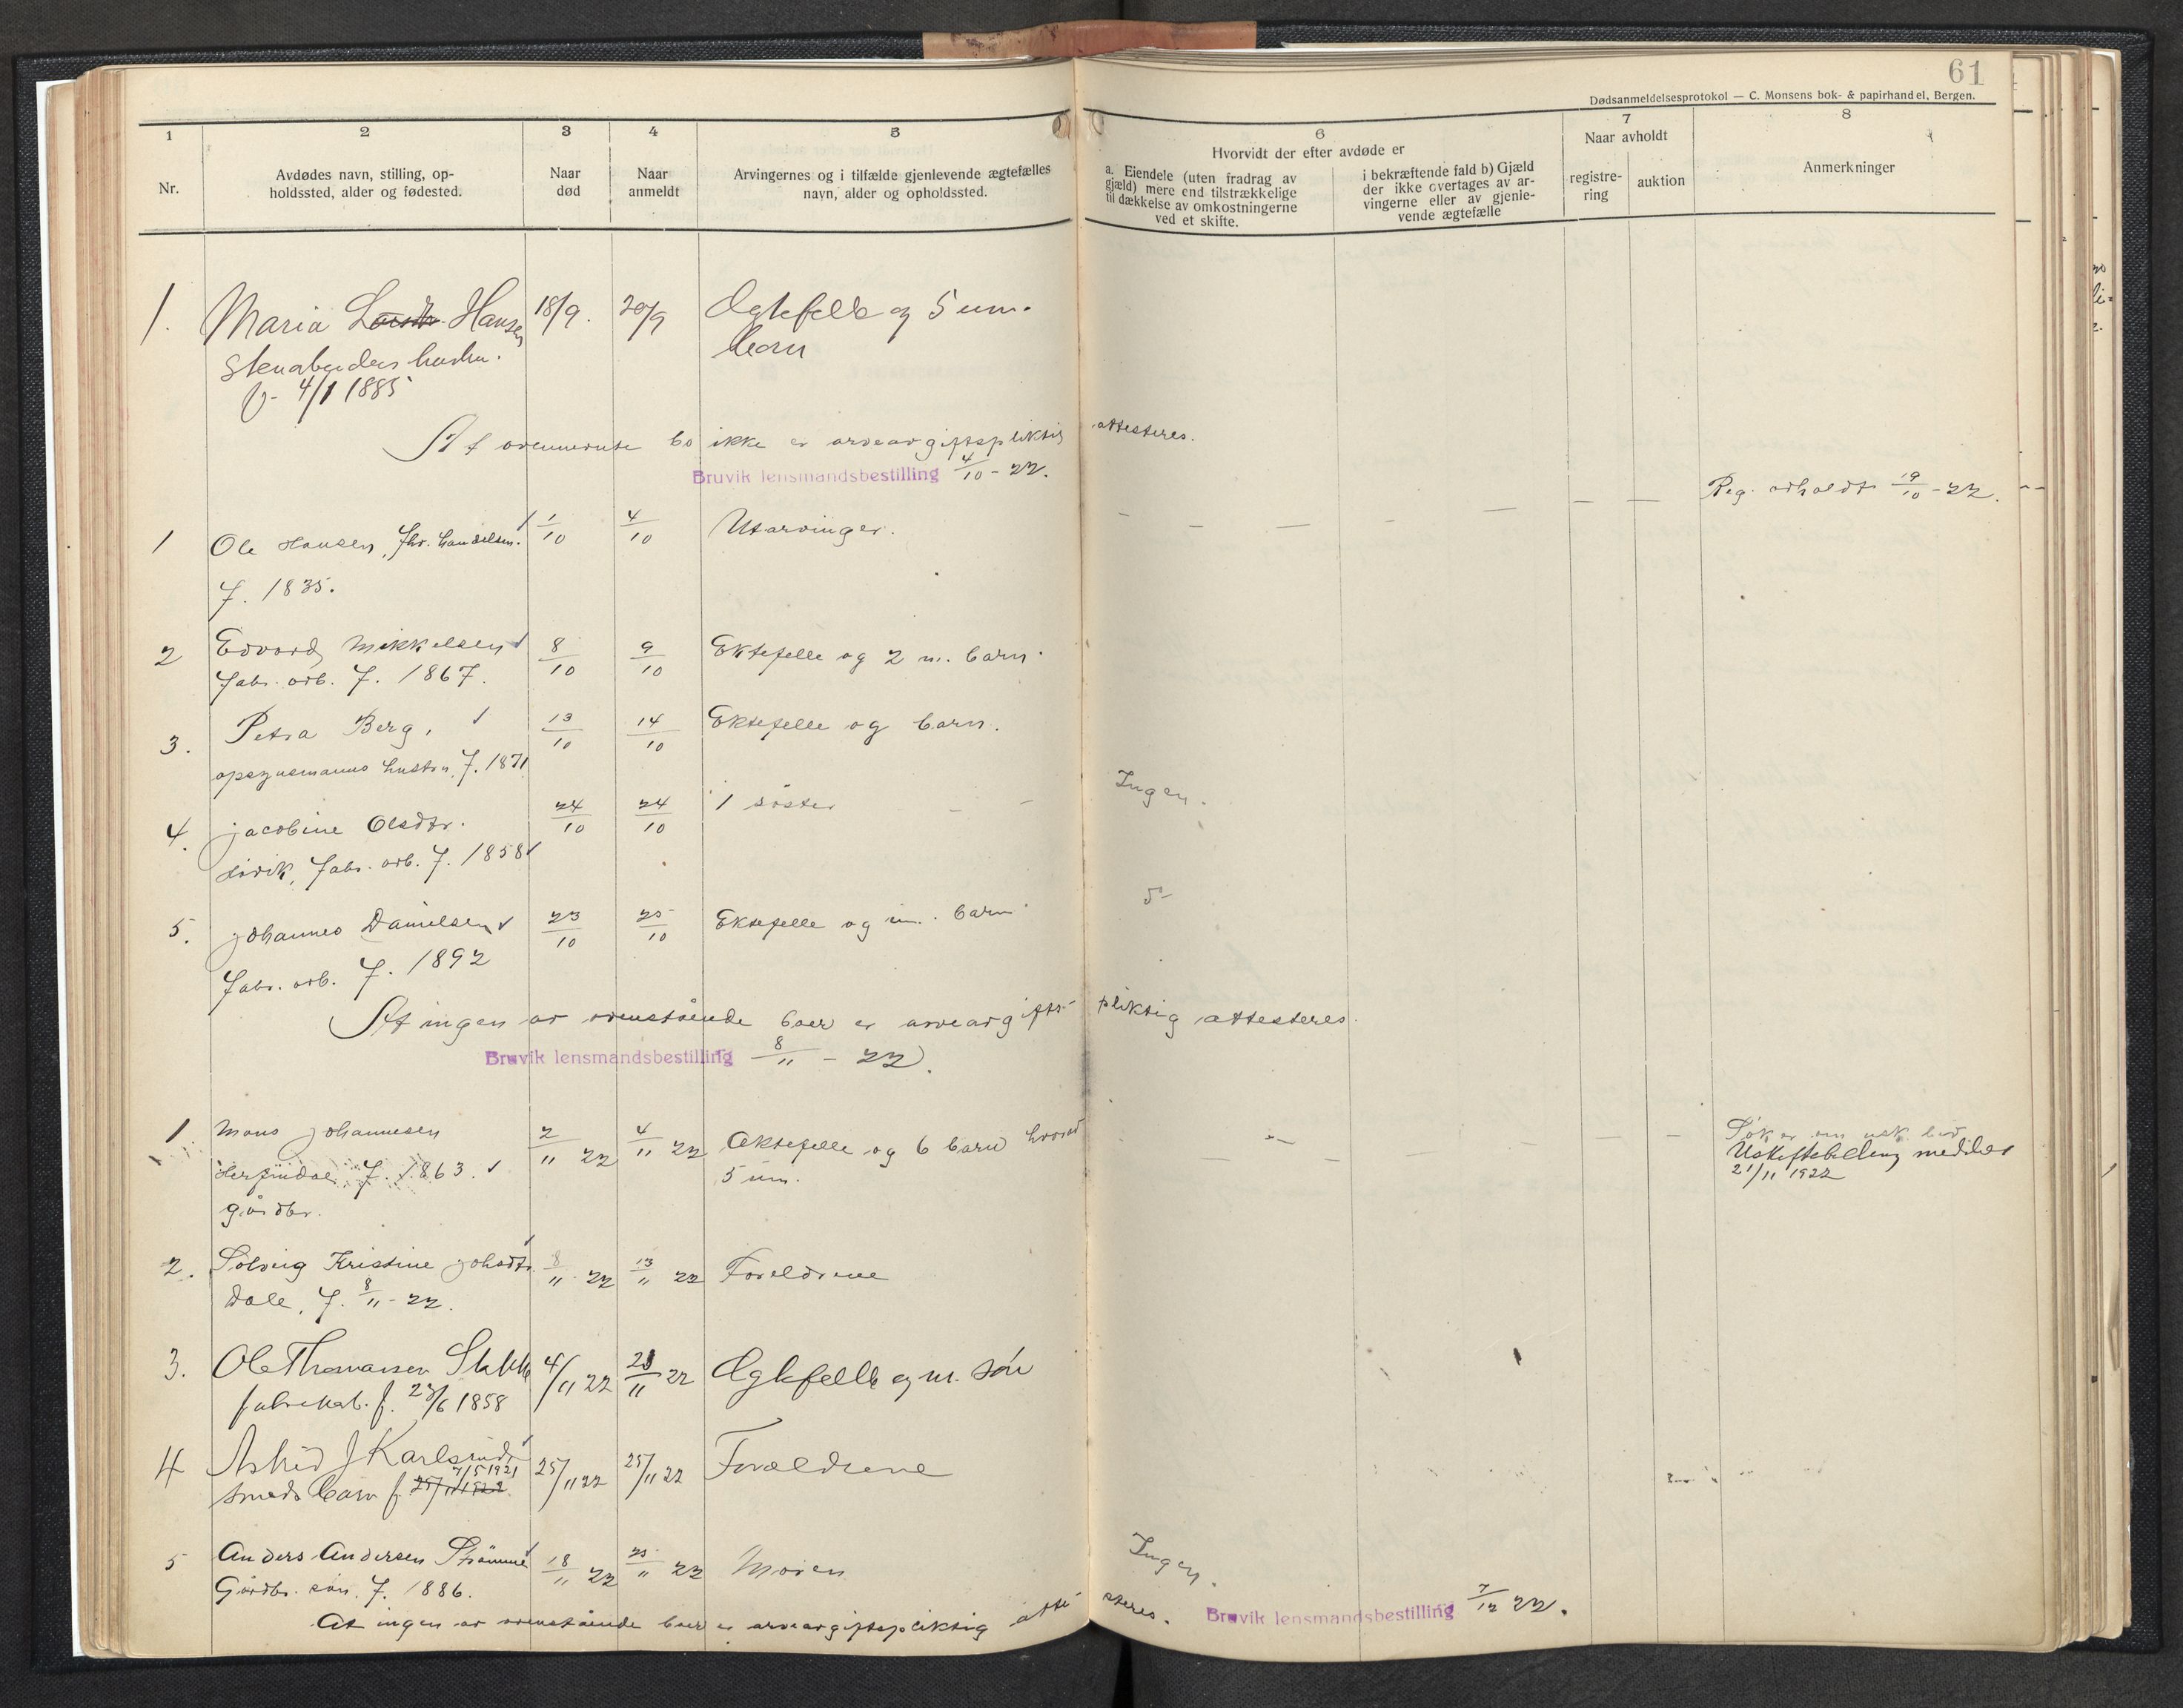 61
Dødsanmeldelsesprotokol — C. Monsens bok- & papirhandel, Bergen.
1 2 3 4 5 6 7 8
Nr.
Avdødes navn, stilling, op-
holdssted, alder og fødested.
Naar
død
Naar
anmeldt
Arvingernes og i tilfælde gjenlevende ægtefælles
navn, alder og opholdssted.
Hvorvidt der efter avdøde er
a. Eiendele (uten fradrag av
gjæld) mere end tilstrækkelige
til dækkelse av omkostningerne
ved et skifte.
i bekræftende fald b) Gjæld
der ikke overtages av ar-
vingerne eller av gjenle-
vende ægtefælle
Naar avholdt
registre-
ring
auktion
Anmerkninger
1. Maria Hansen 18/9. 20/9 Ægtefelle og 5 um.
barn
f. 4/1 1885
At ovennevnte bo ikke er arveavgiftspliktig attesteres.
Bruvik lensmandsbestilling 4/10 - 22.
Reg. avholdt 19/10 - 22.
1 Ole Hansen, 1/10 4/10 Utarvinger.
f. 1835.
2 Edvard Mikkelsen 8/10 9/10 Ektefelle og 2 m. barn.
Fabr. arb. f. 1867.
3. Petra Berg, 13/10 14/10 Ektefelle og barn.
opsynsmanns hustru, f. 1871
4. Jacobine Olsdtr. 24/10 24/10 1 søster Ingen.
Fabr. arb. f. 1858
5. Johannes Danielsen 23/10 25/10 Ektefelle og um. barn
Fabr. arb. f. 1892
At ingen av ovenstående boer er arveavgifts- pliktig attesteres.
Bruvik lensmandsbestilling 8/11 - 22.
1. Mons Johannesen 2/11 22 4/11 22 Æktefelle og 6 barn hvorav
Herfindal f. 1863. 5 um.
gårdbr.
Uskiftebevilling meddelt
21/11 1922
2. Solveig Kristine Johsdtr. 8/11 22 13/11 22 Foreldrene
Dale, f. 8/11 - 22.
3. Ole Thomassen 4/11 22 21/11 22 Ægtefelle og m. søn
f. 23/6 1858
4 Astrid J Karlsrud 25/11 22 25/11 22 Forældrene
7/5 1921
smeds barn f. 25/11 1922
5 Anders Andersen Strømme 18/11 22 25/11 22 Moren Ingen.
Gårdbr. søn. f. 1886.
At ingen av ovenstående boer er arveavgiftspliktig atte- steres.
Bruvik lensmandsbestilling 7/12 22.